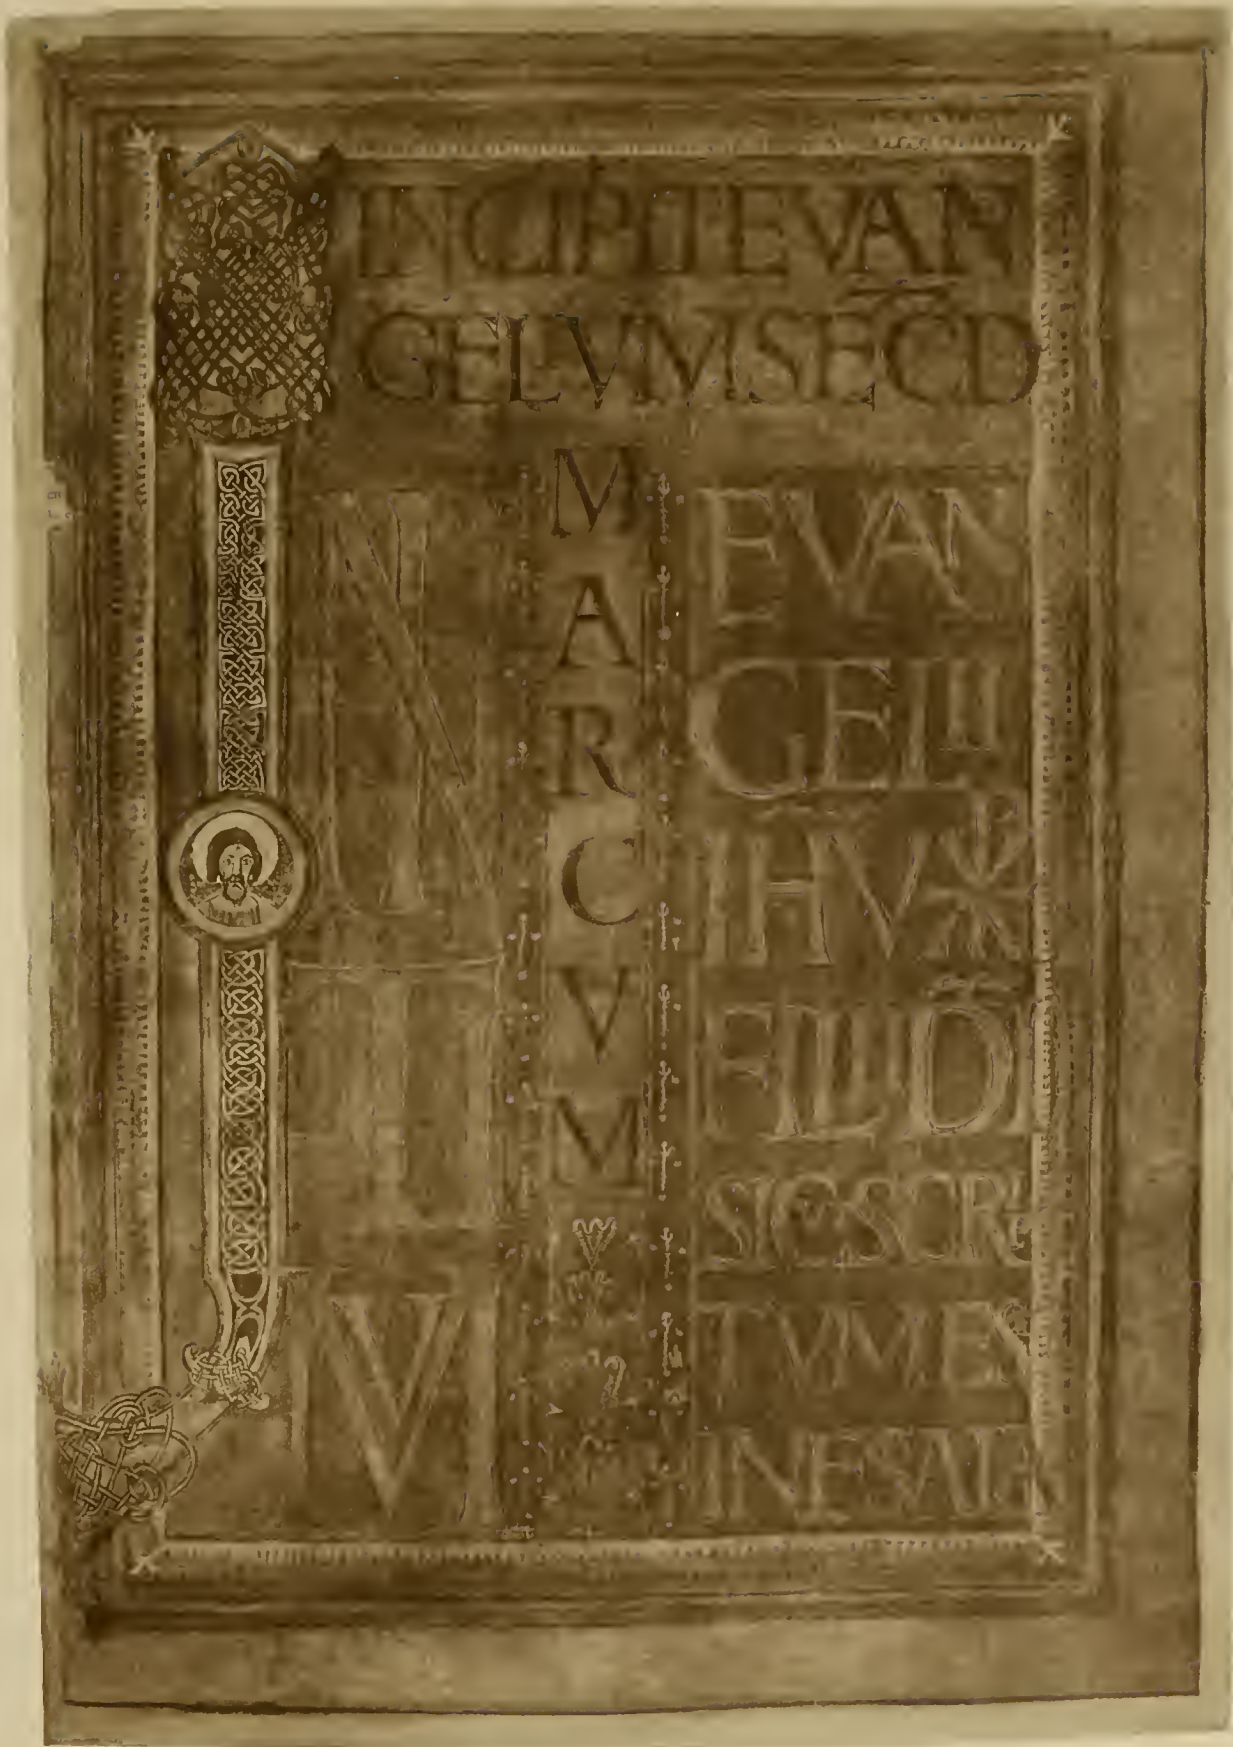 INCIPIT EVAN
GELVM SECD
M
A
R
C
V
M
IN
I
TI
VM
EVAN
GELII
IHV XPI
FILII DI
SIC SCRIP
TVM E
IN ESAIA